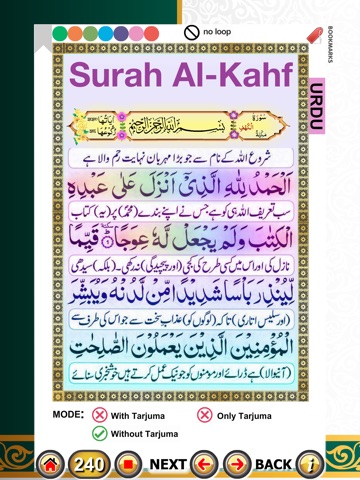 no loop
BOOKMARKS
Surah Al-Kahf
URDU
سورة الكهف مكية
بسم الله الرحمن الرحيم
شروع اللہ کے نام سے جو بڑا مہربان نہایت رحم والا ہے
اَلْحَمْدُ لِلّٰهِ الَّذِیْۤ اَنْزَلَ عَلٰى عَبْدِهِ
سب تعریف اللہ ہی کو ہے جس نے اپنے بندے (محمدؐ) پر (یہ) کتاب
الْكِتٰبَ وَلَمْ یَجْعَلْ لَّهٗ عِوَجًا ① قَیِّمًا
نازل کی اور اس میں کسی طرح کی کجی (اور پیچیدگی) نہ رکھی۔ (بلکہ) سیدھی
لِّیُنْذِرَ بَاْسًا شَدِیْدًا مِّنْ لَّدُنْهُ وَیُبَشِّرَ
(اور سلیس اتاری) تاکہ (لوگوں کو) عذاب سخت سے جو اس کی طرف سے
الْمُؤْمِنِیْنَ الَّذِیْنَ یَعْمَلُوْنَ الصّٰلِحٰتِ
(آنے والا) ہے ڈرائے اور مومنوں کو جو نیک عمل کرتے ہیں خوشخبری سنائے
MODE: With Tarjuma Only Tarjuma
Without Tarjuma
240 NEXT BACK i